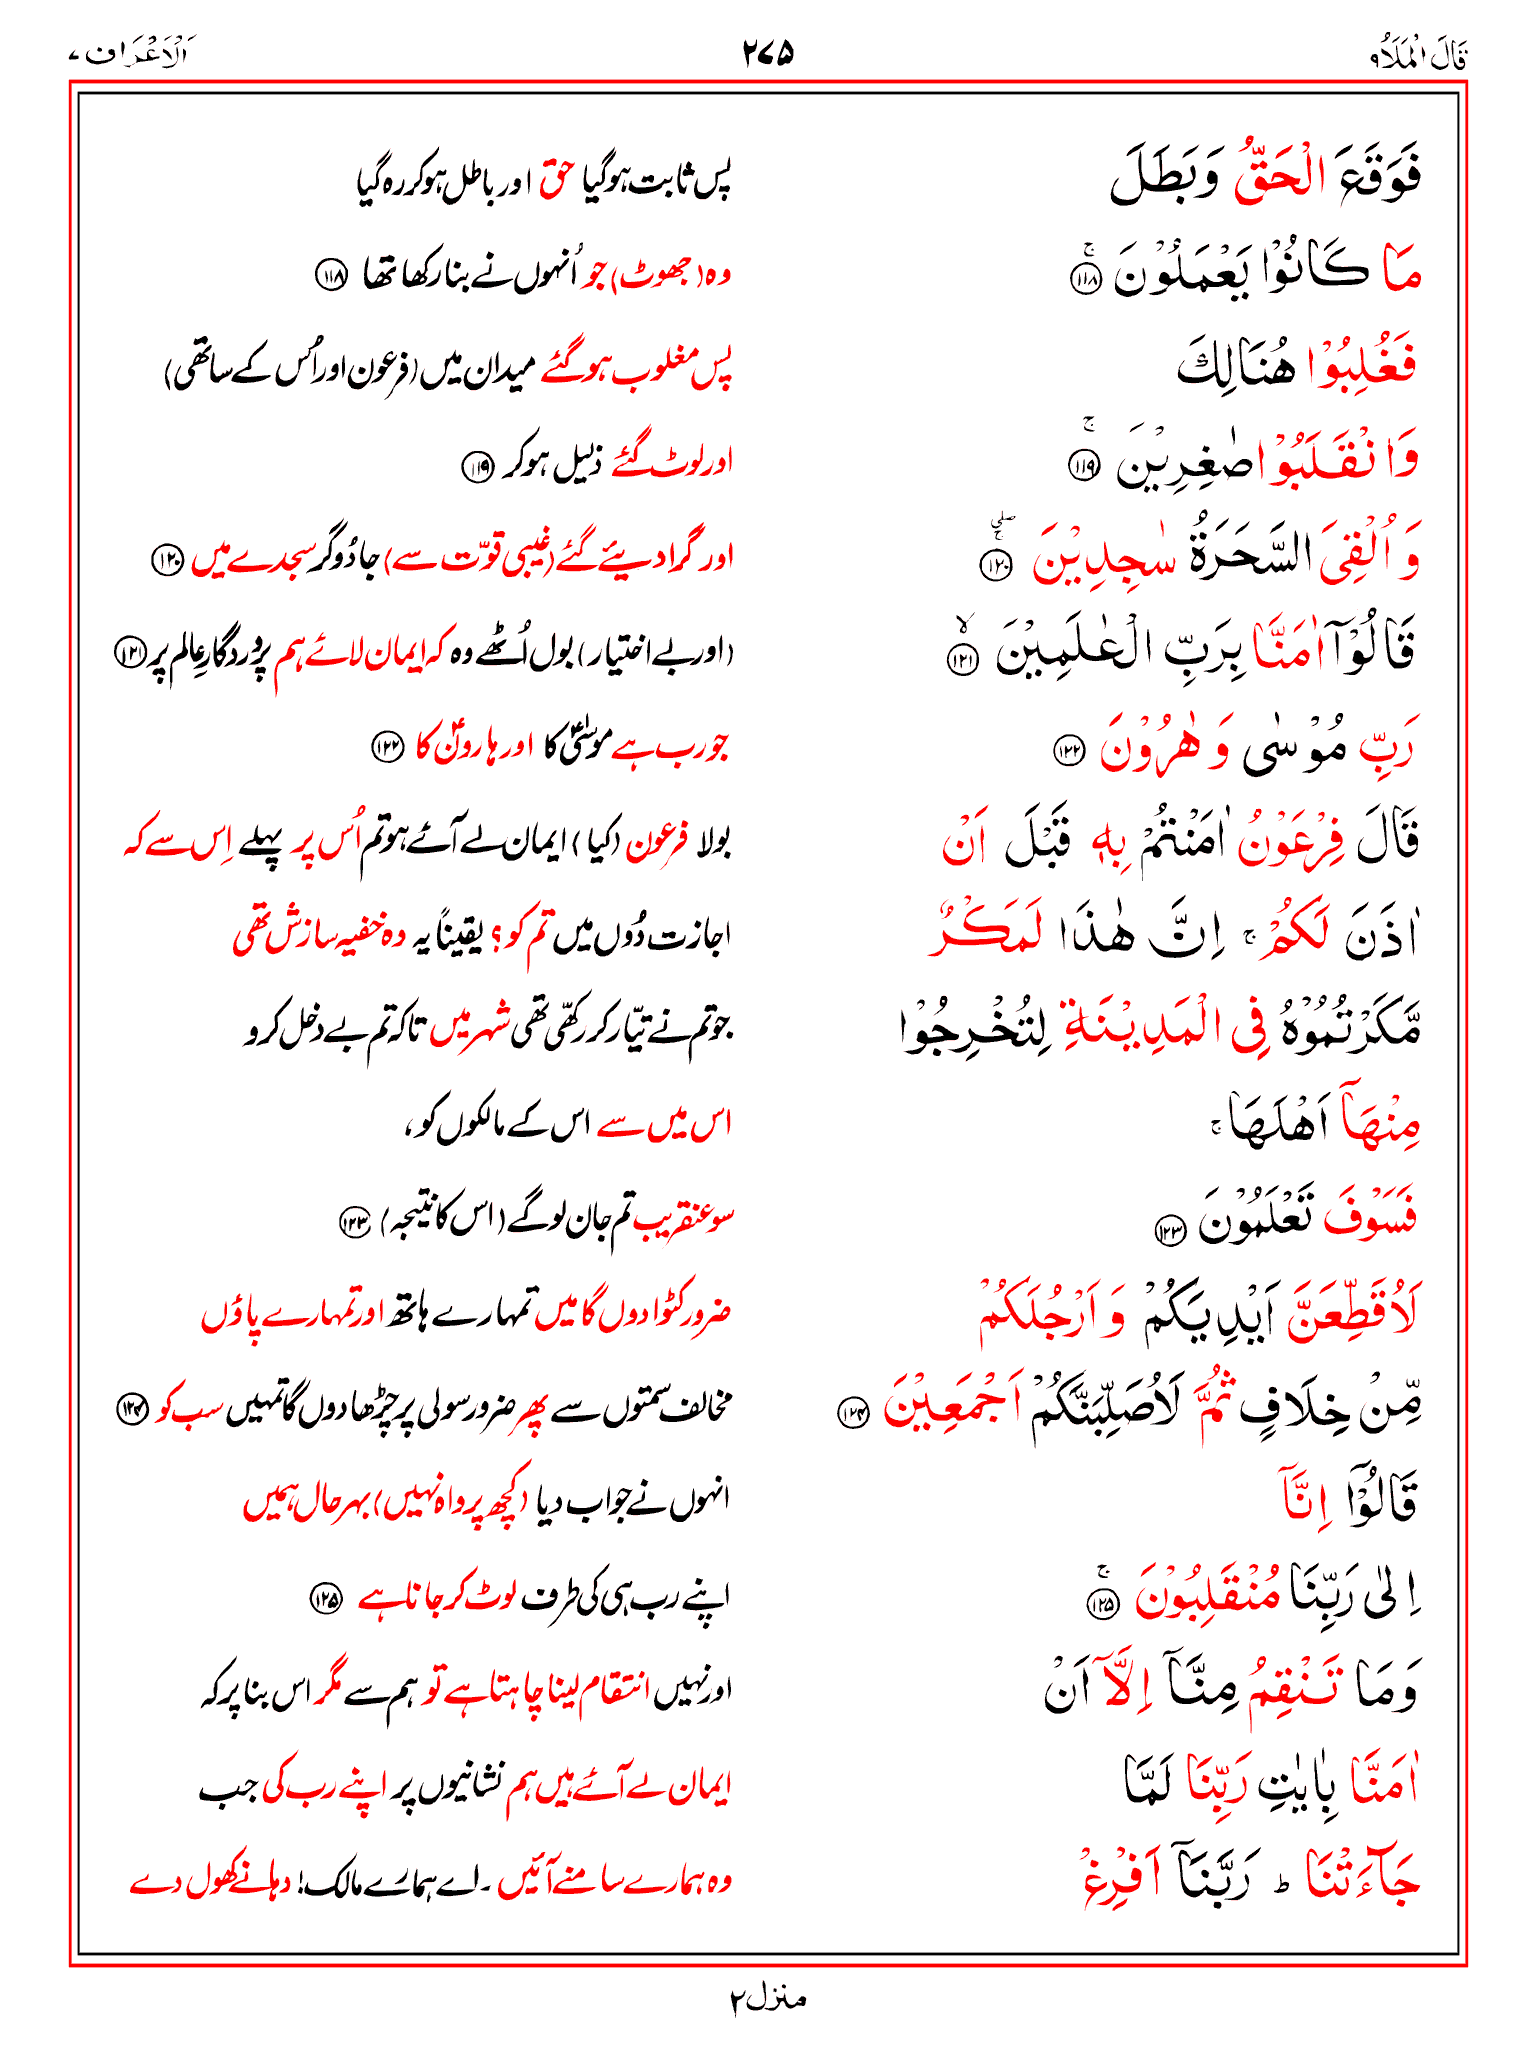 قَالَ الْمَلَاُ ۹ ۲۷۵ اَلْاَعْرَاف ۷
فَوَقَعَ الْحَقُّ وَبَطَلَ پس ثابت ہوگیا حق اور باطل ہوکر رہ گیا
مَا كَانُوْا يَعْمَلُوْنَ ۚ ﴿۱۱۸﴾ وہ (جھوٹ) جو اُنہوں نے بنا رکھا تھا ﴿۱۱۸﴾
فَغُلِبُوْا هُنَالِكَ پس مغلوب ہوگئے میدان میں (فرعون اور اُس کے ساتھی)
وَانْقَلَبُوْا صٰغِرِيْنَ ۚ ﴿۱۱۹﴾ اور لوٹ گئے ذلیل ہوکر ﴿۱۱۹﴾
وَ اُلْقِىَ السَّحَرَةُ سٰجِدِيْنَ ۖۚ ﴿۱۲۰﴾ اور گرا دیئے گئے (غیبی قوّت سے) جادُوگر سجدے میں ﴿۱۲۰﴾
قَالُوْۤا اٰمَنَّا بِرَبِّ الْعٰلَمِيْنَ ۙ ﴿۱۲۱﴾ (اور بے اختیار) بول اُٹھے وہ کہ ایمان لائے ہم پروردگارِ عالم پر ﴿۱۲۱﴾
رَبِّ مُوْسٰى وَ هٰرُوْنَ ﴿۱۲۲﴾ جو رب ہے موسٰیؑ کا اور ہارونؑ کا ﴿۱۲۲﴾
قَالَ فِرْعَوْنُ اٰمَنْتُمْ بِهٖ قَبْلَ اَنْ بولا فرعون (کیا) ایمان لے آئے ہو تم اُس پر پہلے اِس سے کہ
اٰذَنَ لَكُمْ ۚ اِنَّ هٰذَا لَمَكْرٌ اجازت دُوں میں تم کو؟ یقیناً یہ وہ خفیہ سازش تھی
مَّكَرْتُمُوْهُ فِى الْمَدِيْنَةِ لِتُخْرِجُوْا جو تم نے تیّار کر رکھّی تھی شہر میں تاکہ تم بے دخل کرو
مِنْهَاۤ اَهْلَهَا ۚ اس میں سے اس کے مالکوں کو،
فَسَوْفَ تَعْلَمُوْنَ ﴿۱۲۳﴾ سو عنقریب تم جان لو گے (اس کا نتیجہ) ﴿۱۲۳﴾
لَاُقَطِّعَنَّ اَيْدِيَكُمْ وَ اَرْجُلَكُمْ ضرور کٹوا دوں گا میں تمہارے ہاتھ اور تمہارے پاؤں
مِّنْ خِلَافٍ ثُمَّ لَاُصَلِّبَنَّكُمْ اَجْمَعِيْنَ ﴿۱۲۴﴾ مخالف سمتوں سے پھر ضرور سولی پر چڑھا دوں گا تمہیں سب کو ﴿۱۲۴﴾
قَالُوْۤا اِنَّاۤ انہوں نے جواب دیا (کچھ پرواہ نہیں) بہرحال ہمیں
اِلٰى رَبِّنَا مُنْقَلِبُوْنَ ۚ ﴿۱۲۵﴾ اپنے رب ہی کی طرف لوٹ کر جانا ہے ﴿۱۲۵﴾
وَمَا تَنْقِمُ مِنَّاۤ اِلَّاۤ اَنْ اور نہیں انتقام لینا چاہتا ہے تو ہم سے مگر اس بنا پر کہ
اٰمَنَّا بِاٰيٰتِ رَبِّنَا لَمَّا ایمان لے آئے ہیں ہم نشانیوں پر اپنے رب کی جب
جَآءَتْنَا ؕ رَبَّنَاۤ اَفْرِغْ وہ ہمارے سامنے آئیں۔ اے ہمارے مالک! دہانے کھول دے
منزل ۲